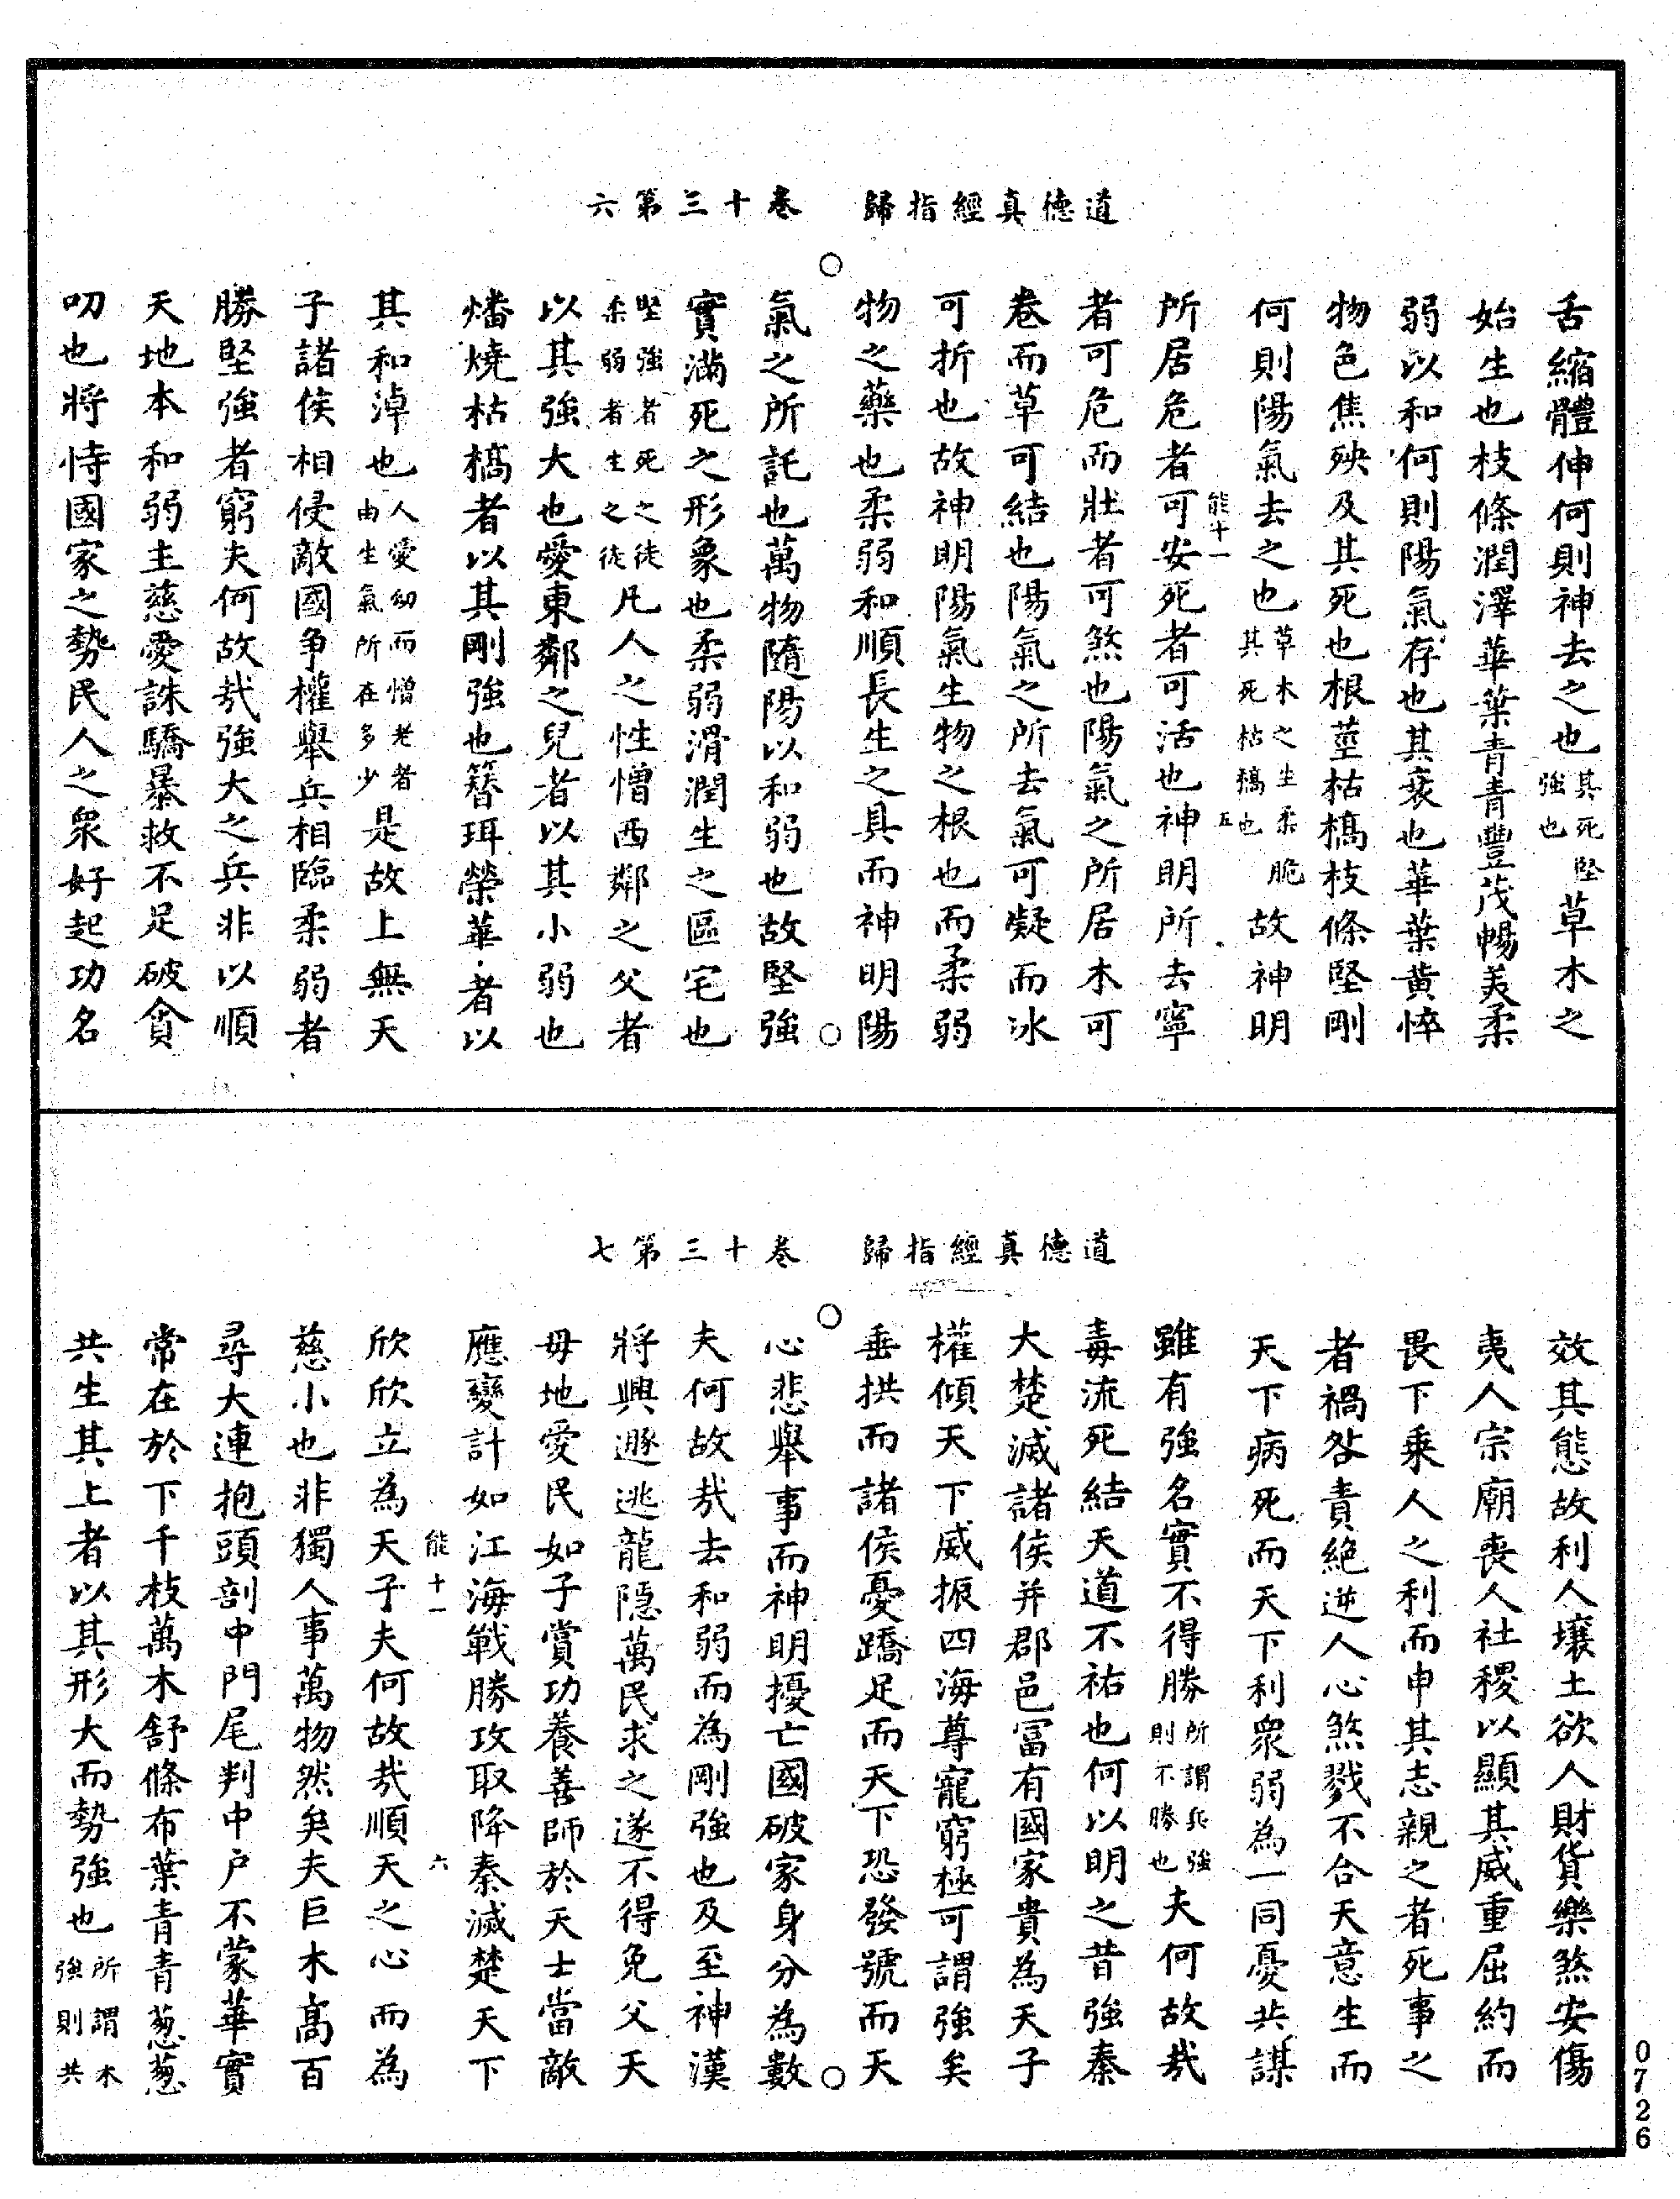 道德真經指歸　卷十三第六
舌縮體伸何則神去之也其死堅強也草木之
始生也枝條潤澤華葉青青豐茂暢美柔
弱以和何則陽氣存也其衰也華葉黃悴
物色焦殃及其死也根莖枯槁枝條堅剛
何則陽氣去之也草木之生柔脆其死枯槁也故神明
能十一　五
所居危者可安死者可活也神明所去寧
者可危而壯者可煞也陽氣之所居木可
卷而草可結也陽氣之所去氣可凝而冰
可折也故神明陽氣生物之根也而柔弱
物之藥也柔弱和順長生之具而神明陽
氣之所託也萬物隨陽以和弱也故堅強
實滿死之形象也柔弱滑潤生之區宅也
堅強者死之徒柔弱者生之徒凡人之性憎西鄰之父者
以其強大也愛東鄰之兒者以其小弱也
燔燒枯槁者以其剛強也簪珥榮華者以
其和淖也人愛幼而憎老者由生氣所在多少是故上無天
子諸侯相侵敵國爭權舉兵相臨柔弱者
勝堅強者窮夫何故哉強大之兵非以順
天地本和弱主慈愛誅驕暴救不足破貪
叨也將恃國家之勢民人之眾好起功名
道德真經指歸　卷十三第七
效其態故利人壤土欲人財貨樂煞安傷
夷人宗廟喪人社稷以顯其威重屈約而
畏下乘人之利而申其志親之者死事之
者禍咎責絕逆人心煞戮不合天意生而
天下病死而天下利眾弱為一同憂共謀
雖有強名實不得勝所謂兵強則不勝也夫何故哉
毒流死結天道不祐也何以明之昔強秦
大楚滅諸侯并郡邑冨有國家貴為天子
權傾天下威振四海尊寵窮極可謂強矣
垂拱而諸侯憂蹻足而天下恐發號而天
心悲舉事而神明擾亡國破家身分為數
夫何故哉去和弱而為剛強也及至神漢
將興遯逃龍隱萬民求之遂不得免父天
母地愛民如子賞功養善師於天士當敵
應變計如江海戰勝攻取降秦滅楚天下
能十一　六
欣欣立為天子夫何故哉順天之心而為
慈小也非獨人事萬物然矣夫巨木高百
尋大連抱頭剖中門尾判中戶不蒙華實
常在於下千枝萬木舒條布葉青青葱葱
共生其上者以其形大而勢強也所謂木強則共
0726